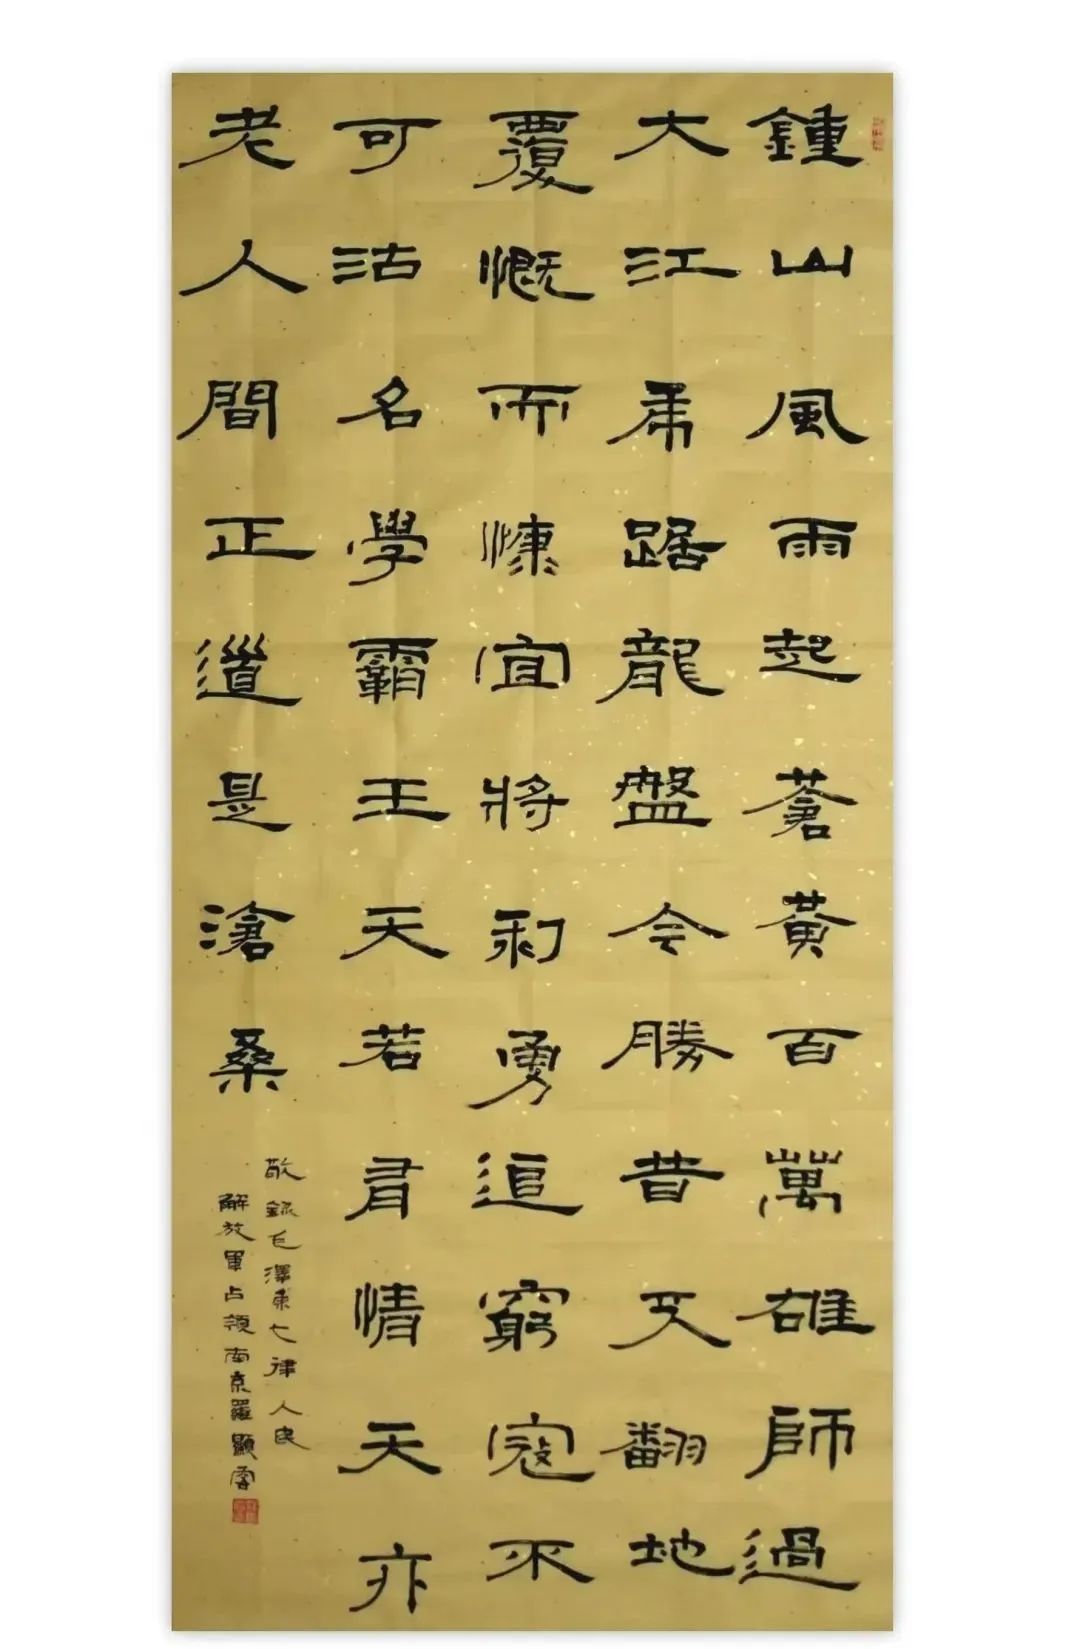 鍾山風雨起蒼黃百萬雄師過
大江虎踞龍盤今勝昔天翻地
覆慨而慷宜將剩勇追窮寇不
可沽名學霸王天若有情天亦
老人間正道是滄桑
敬錄毛澤東七律人民
解放軍占領南京羅顯